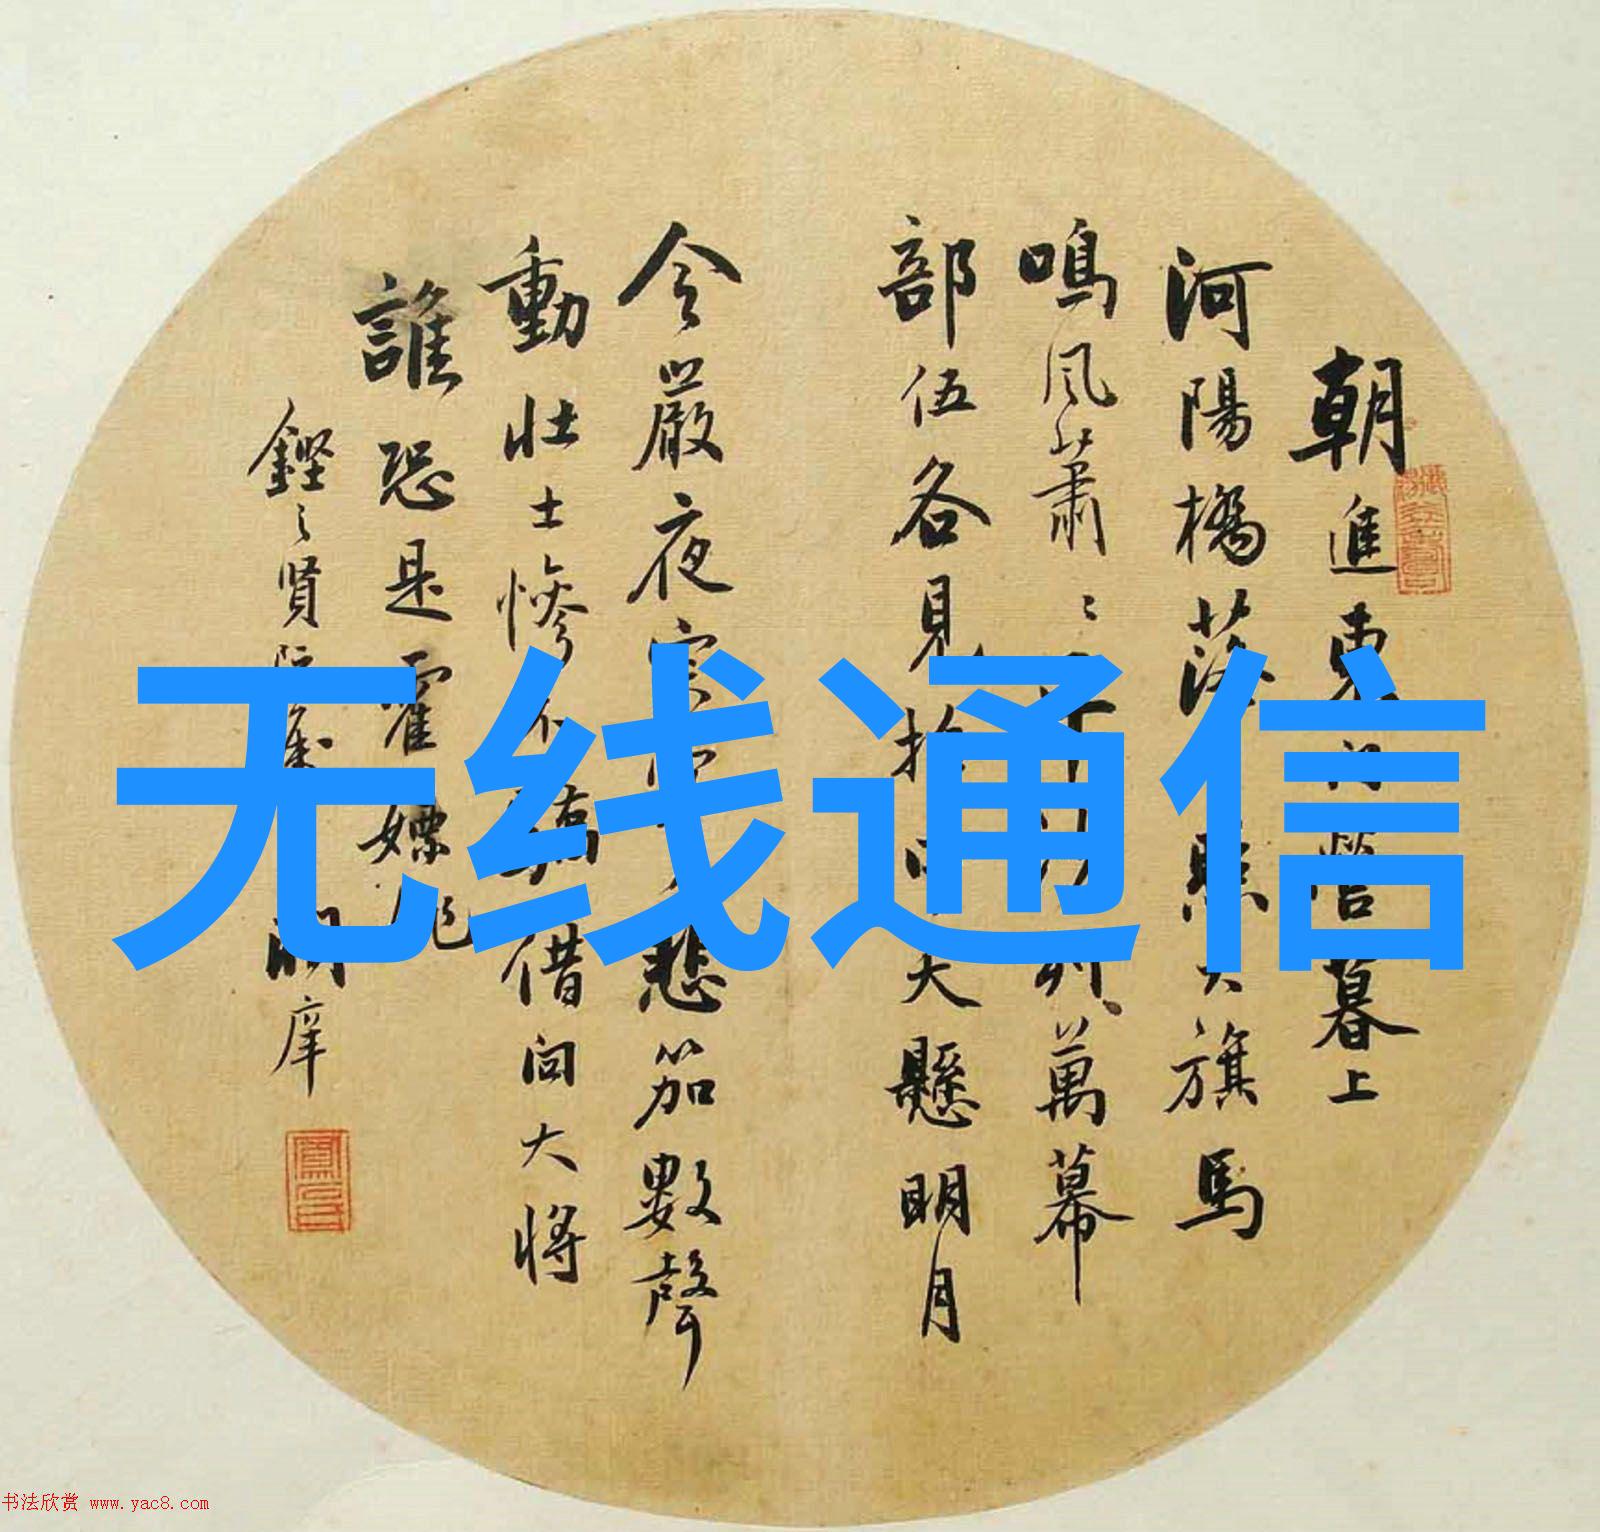 朝進東門營暮上
河陽橋落照大旗馬
鳴風蕭〻平沙列萬幕
部伍各見招中天懸明月
令嚴夜寂寥悲笳數聲
動壯士慘不驕借問大將
誰恐是霍嫖姚
賢
无线通信
书法欣赏 www.yac8.com